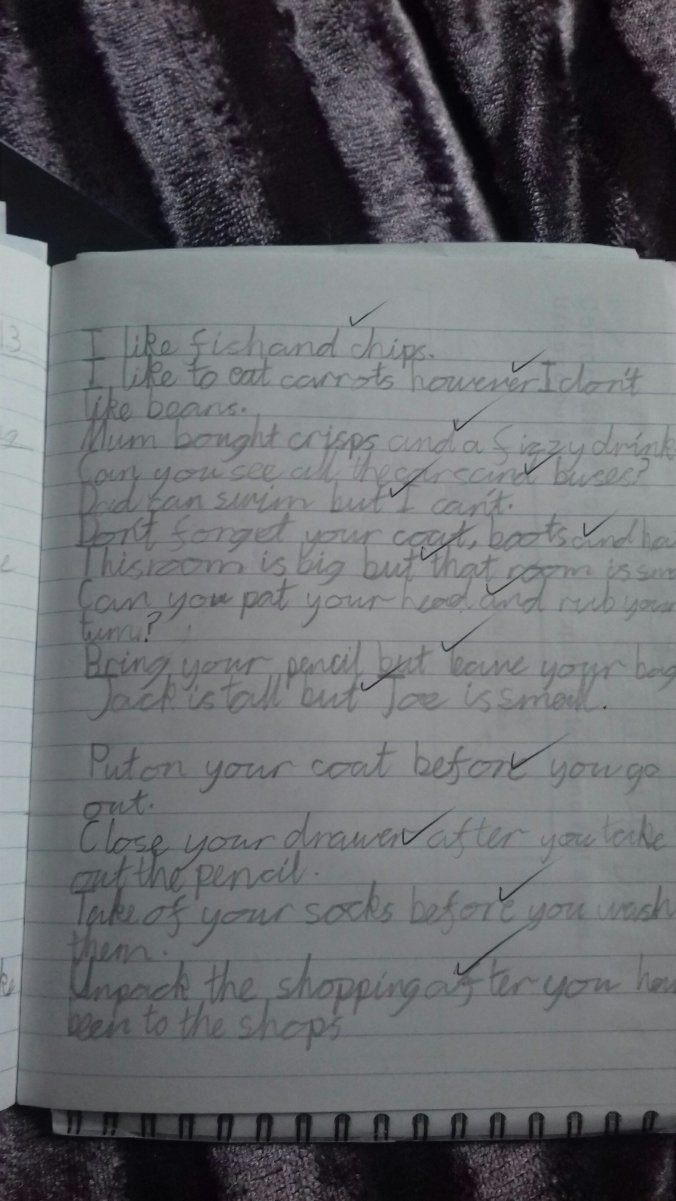 13
I like fish and chips.
I like to eat carrots however I don't
like beans.
Mum bought crisps and a fizzy drink
Can you see all the cars and buses?
Dad can swim but I can't.
Don't forget your coat, boots and
This room is big but that room is
Can you pat your head and rub your
tum?
Bring your pencil but leave your bag
Jack is tall but Joe is small.
Put on your coat before you go
out.
Close your drawer after you take
out the pencil.
Take of your socks before you wash
them.
Unpack the shopping after you
been to the shops